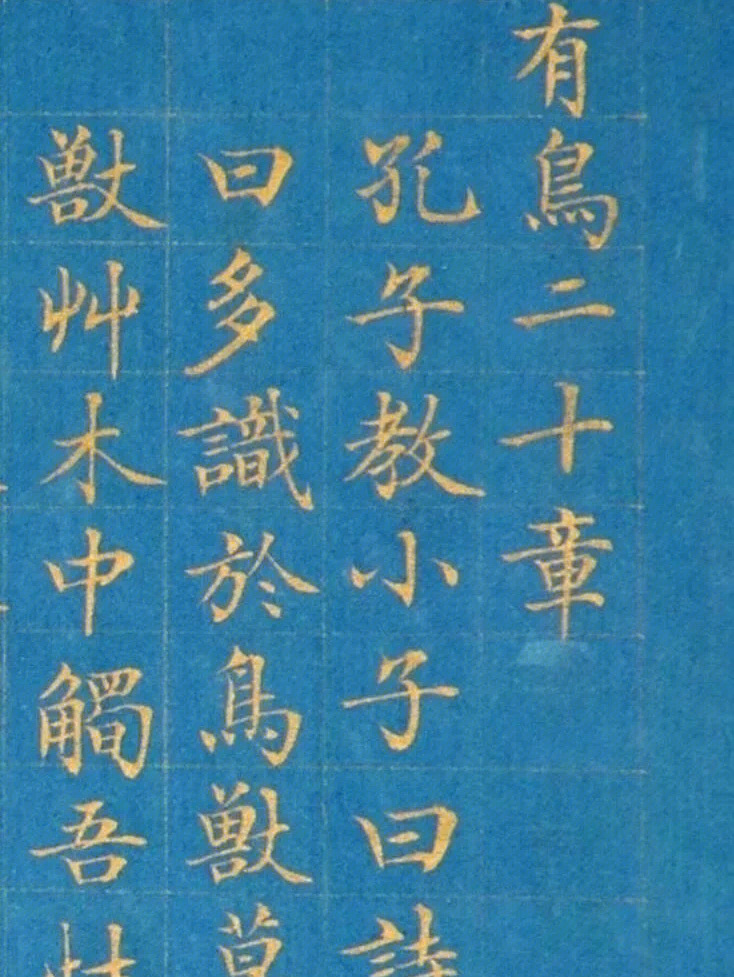 有鳥二十章
孔子教小子曰詩
曰多識於鳥獣草
獣艸木中觸吾